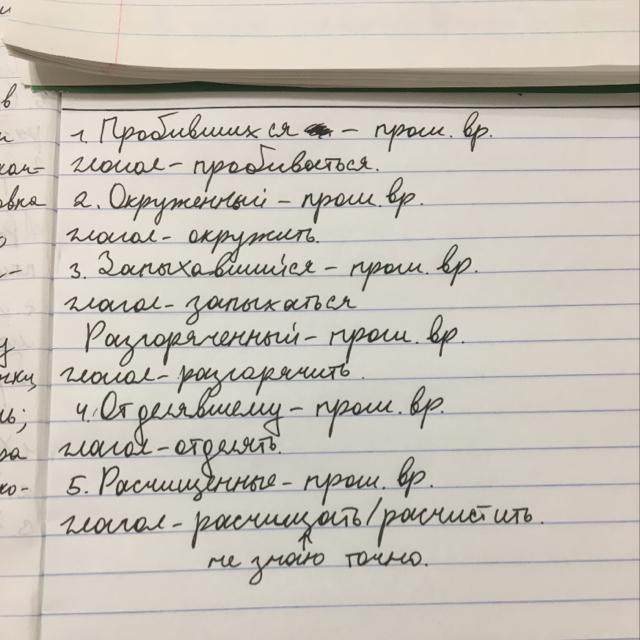 и
в
1. Пробившихся – прош. вр.
глагол – пробиваться.
2. Окруженный – прош. вр.
овка
глагол – окружить.
3. Запыхавшийся – прош. вр.
глагол – запыхаться
Разгоряченный – прош. вр.
у
глагол – разгорячить.
4. Отделявшему – прош. вр.
ль;
глагол – отделять.
ра
5. Расчищенные – прош. вр.
ко-
глагол – расчищать/расчистить.
не знаю точно.